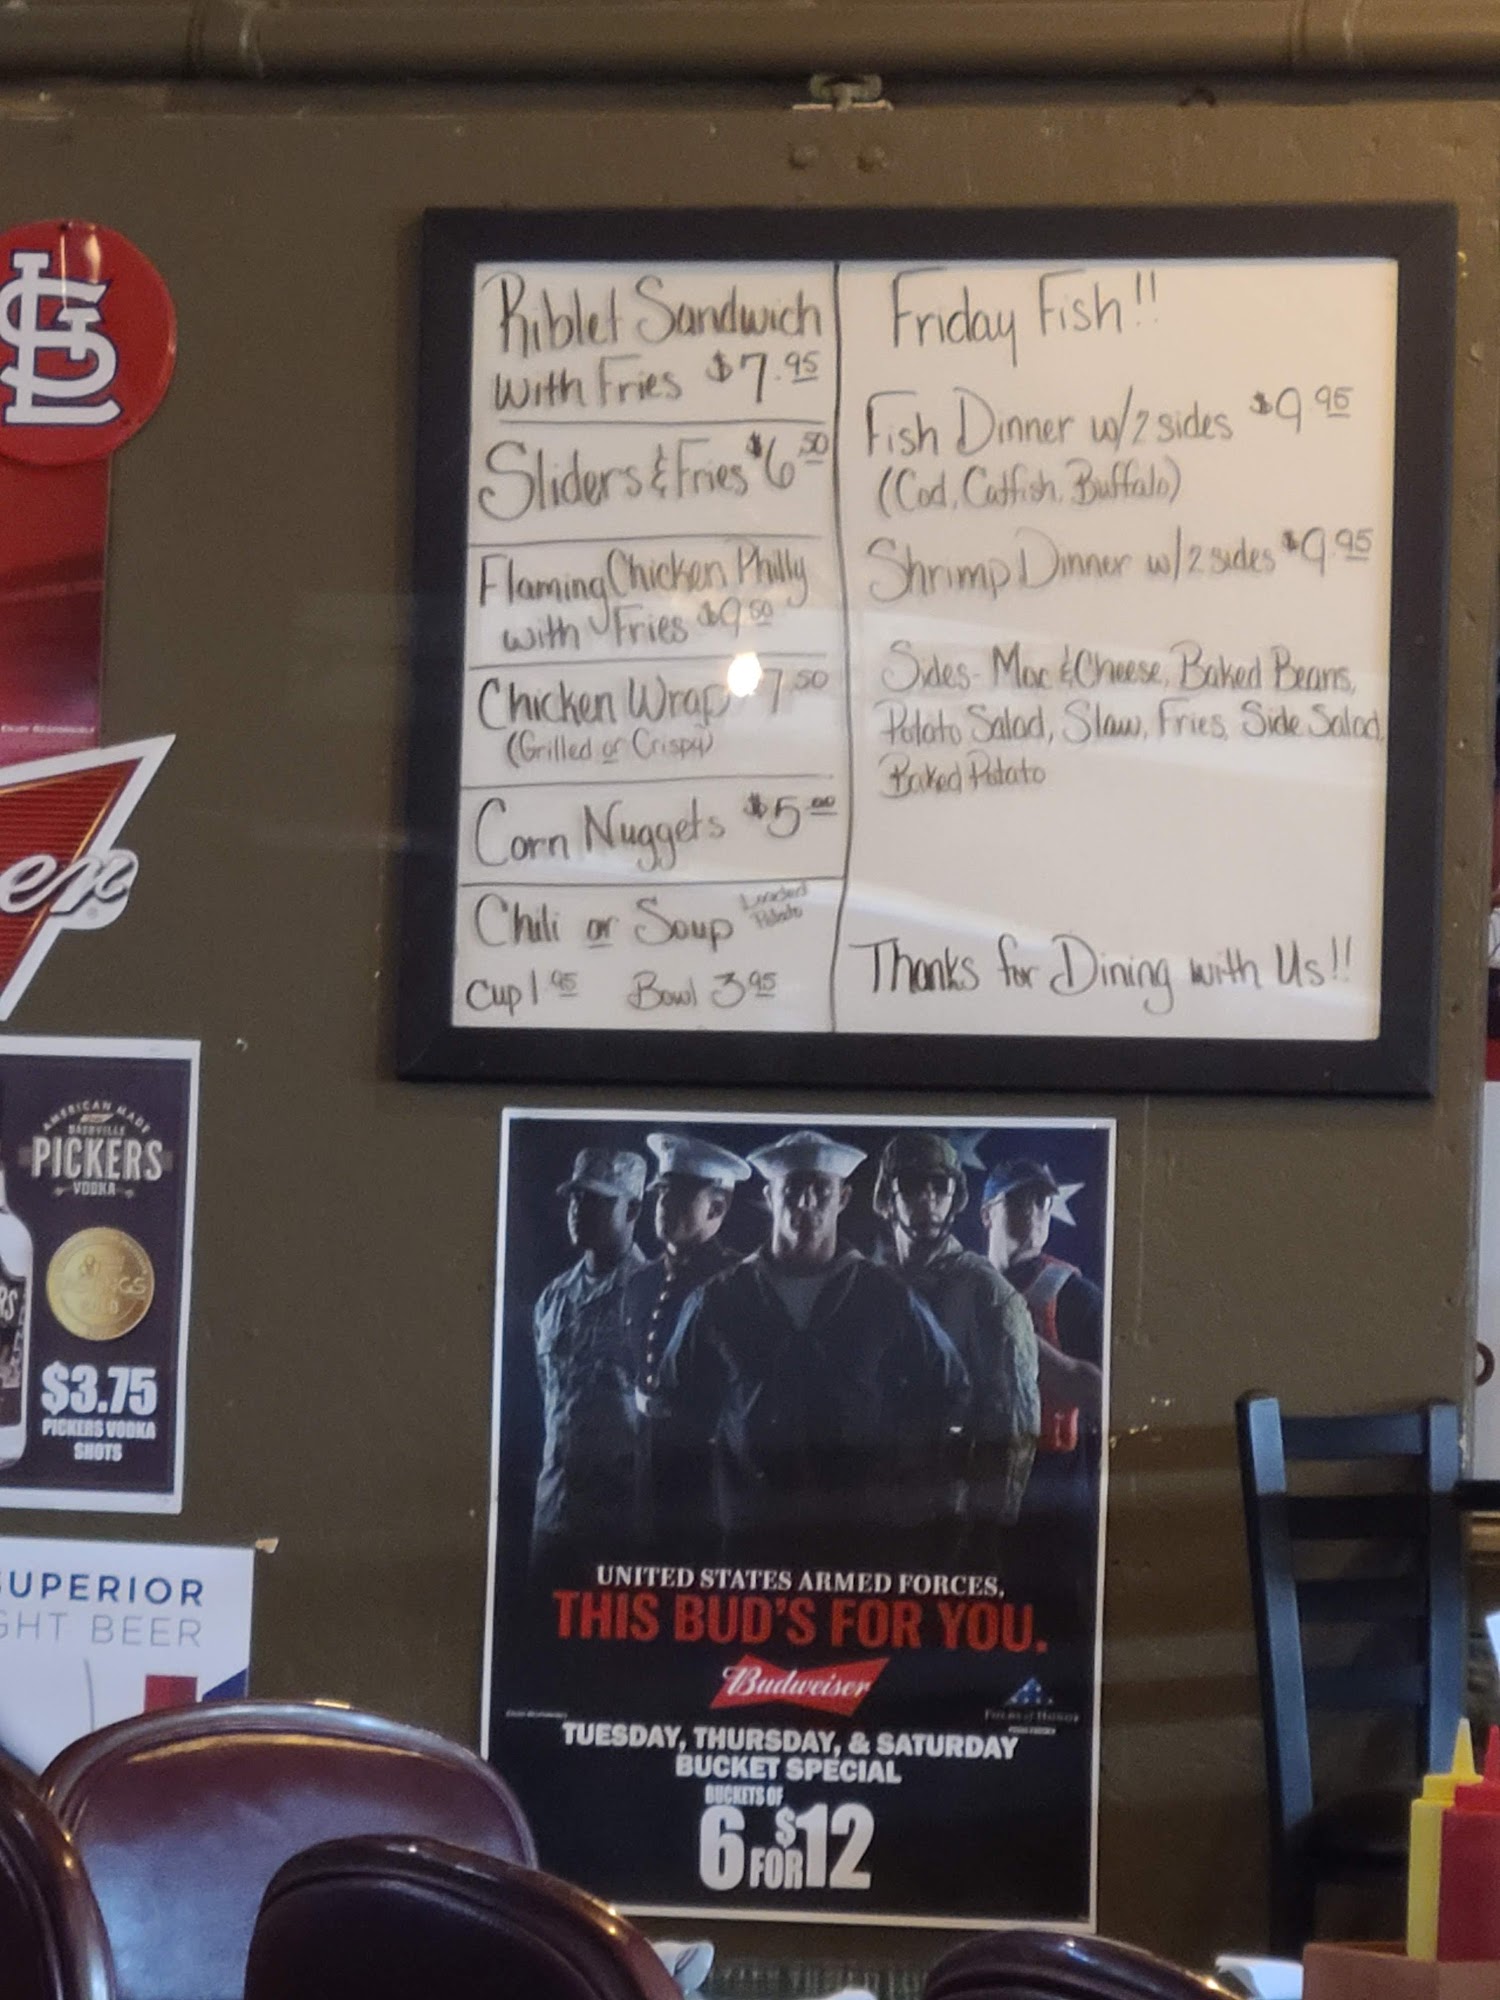 STL
Riblet Sandwich
with Fries $7.95
Sliders & Fries $6.50
Flaming Chicken Philly
with Fries $9.50
Chicken Wrap 7.50
(Grilled or Crispy)
Corn Nuggets $5.00
Chili or Soup Loaded
Potato
Cup 1.95 Bowl 3.95
Friday Fish!!
Fish Dinner w/2 sides $9.95
(Cod, Catfish, Buffalo)
Shrimp Dinner w/2 sides $9.95
Sides- Mac & Cheese, Baked Beans,
Potato Salad, Slaw, Fries, Side Salad,
Baked Potato
Thanks for Dining with Us!!
ENJOY RESPONSIBLY
er
AMERICAN MADE
NASHVILLE
PICKERS
VODKA
RS
GOLD
$3.75
PICKERS VODKA
SHOTS
SUPERIOR
GHT BEER
UNITED STATES ARMED FORCES,
THIS BUD'S FOR YOU.
Budweiser
FOLDS of HONOR
TUESDAY, THURSDAY, & SATURDAY
BUCKET SPECIAL
BUCKETS OF
6 FOR $12